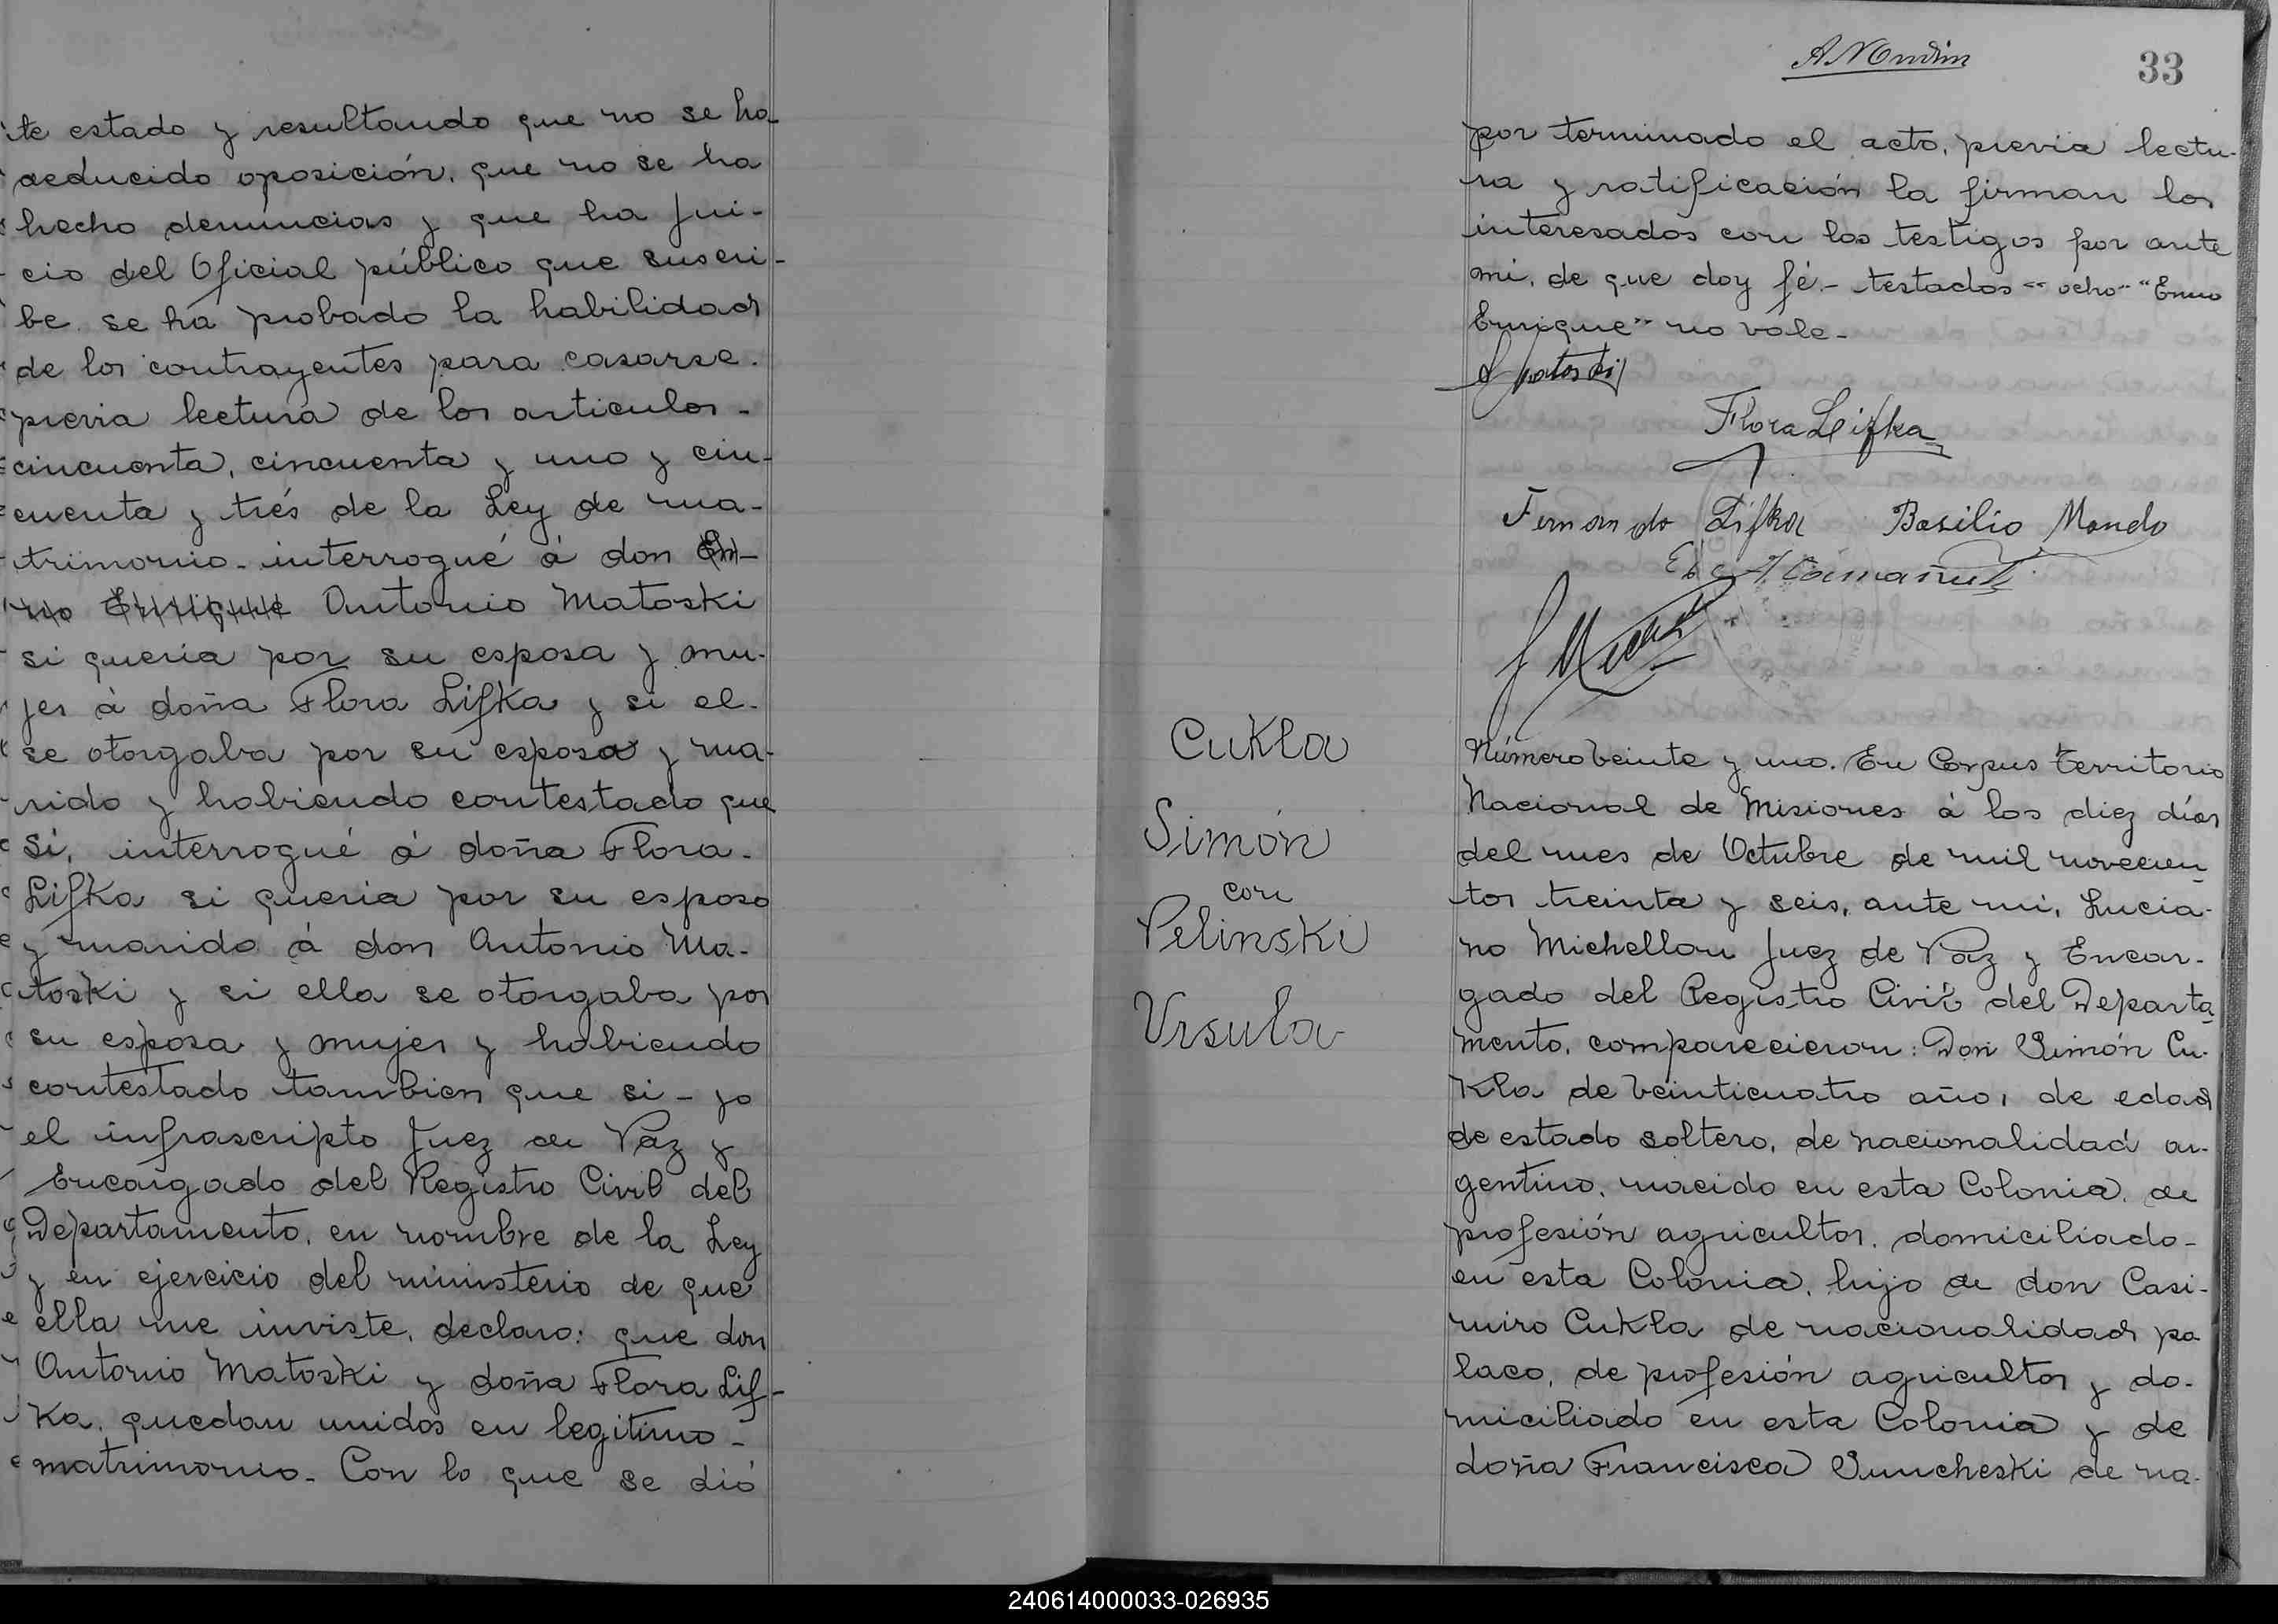 te estado y resultando que no se ha
deducido oposición, que no se ha
hecho denuncias y que ha jui-
cio del Oficial público que suscri-
be se ha probado la habilidad
de los contrayentes para casarse.
previa lectura de los articulos-
cincuenta, cincuenta y uno y cin-
cuenta y trés de la Ley de ma-
trimonio- interrogué á don En-
rio Enrique Antonio Matoski
si queria por su esposa y mu-
jer á doña Flora Lifka y si el-
se otorgaba por su esposo y ma-
rido y habiendo contestado que
Si, interrogué á doña Flora-
Lifka si queria por su esposo
y marido á don Antonio Ma-
toski y si ella se otorgaba por
su esposa y mujer y habiendo
contestado tambien que si - yo
el infrascripto Juez de Paz y
Encargado del Registro Civil del
Departamento, en nombre de la Ley
y en ejercicio del ministerio de que
ella me inviste, declaro: que don
Antonio Matoski y doña Flora Lif-
Ka, quedan unidos en legitimo-
matrimonio- Con lo que se dió
33
por terminado el acto, previa lectu-
ra y ratificación la firman los
interesados con los testigos por ante
mi, de que doy fé.- testados "ocho"
Enrique" no vale-
Matoski
Flora Lifka
Fernando Lifka Basilio Mando
Cukla
Simón
con
Pelinski
Ursula
Número veinte y uno. En Corpus territorio
Nacional de Misiones á los diez días
del mes de Octubre de mil novecien
tos treinta y seis, ante mi, Lucia-
no Michellon Juez de Paz y Encar-
gado del Registro Civil del Departa
mento, comparecieron: Don Simón Cu-
kla de veinticuatro años de edad
de estado soltero, de nacionalidad ar-
gentino, nacido en esta Colonia, de
profesión agricultor, domiciliado-
en esta Colonia, hijo de don Casi-
miro Cukla de nacionalidad po
laco, de profesión agricultor y do-
miciliado en esta Colonia y de
doña Francisca Suncheski de na-
240614000033-026935